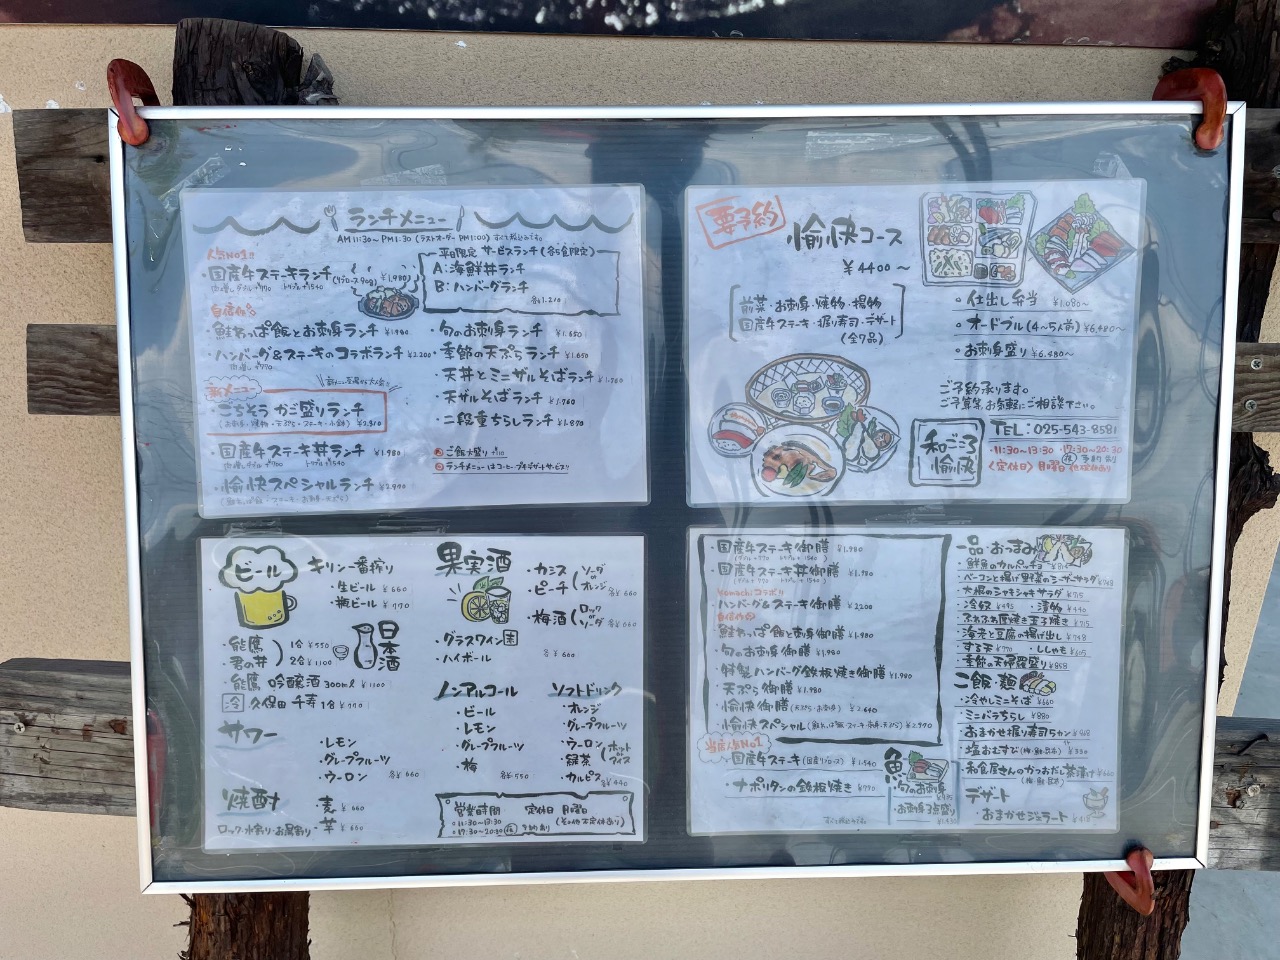 ランチメニュー
AM 11:30〜 PM 1:30 (ラストオーダー PM 1:00) すべて税込みです。
人気NO1!!
・国産牛ステーキランチ(リブロース90g) ¥1,980
肉増しダブル +770 トリプル +1540
自信作
・鮭わっぱ飯とお刺身ランチ ¥1,980
・ハンバーグ&ステーキのコラボランチ ¥2200
肉増し +770
新メニュー
・ごちそうガジ盛りランチ
(お刺身・焼物・天ぷら・ステーキ・小鉢) ¥2,310
・国産牛ステーキ丼ランチ ¥1,980
肉増しダブル +770 トリプル +1540
・愉快スペシャルランチ ¥2,970
平日限定 サービスランチ(各5食限定)
A:海鮮丼ランチ
B:ハンバーグランチ
各¥1,210
・旬のお刺身ランチ ¥1,650
・季節の天ぷらランチ ¥1,650
・天丼とミニザルそばランチ ¥1,980
・天ザルそばランチ ¥1,760
・二段重ちらしランチ ¥1,870
ご飯大盛り +110
ランチメニューはコーヒー・プチデザートサービス
要予約
愉快コース
¥4400〜
前菜・お刺身・焼物・揚物
国産牛ステーキ・握り寿司・デザート
(全7品)
仕出し弁当 ¥1,080〜
オードブル(4〜5人前) ¥6,480〜
お刺身盛り ¥6,480〜
ご予約承ります。
ご予算等、お気軽にご相談下さい。
和ごころ
愉快
TEL:025-543-8581
・11:30〜13:30 ・17:30〜20:30
(夜)予約制
〈定休日〉月曜日
ビール
キリン一番搾り
・生ビール ¥660
・瓶ビール ¥770
日本酒
・能鷹
・君の井
1合 ¥550
2合 ¥1100
・能鷹 吟醸酒 300ml ¥1100
冷 久保田 千寿 1合 ¥770
サワー
・レモン
・グレープフルーツ
・ウーロン 各¥660
焼酎
ロック・水割り・お湯割り
・麦 ¥660
・芋 ¥660
果実酒
・カシス
・ピーチ
ソーダ or オレンジ 各¥660
・梅酒
ロック or ソーダ 各¥660
・グラスワイン
・ハイボール 各¥660
ノンアルコール
・ビール
・レモン
・グレープフルーツ
・梅 各¥550
ソフトドリンク
・オレンジ
・グレープフルーツ
・ウーロン
・緑茶
ホット or アイス
・カルピス 各¥440
営業時間
・11:30〜13:30
・17:30〜20:30 (夜)予約制
定休日 月曜日
(その他不定休あり)
・国産牛ステーキ御膳 ¥1,980
(ダブル +770 トリプル +1540)
・国産牛ステーキ丼御膳 ¥1,980
(ダブル +770 トリプル +1540)
・ハンバーグ&ステーキ御膳 ¥2200
自信作
・鮭わっぱ飯と刺身御膳 ¥1,980
・旬のお刺身御膳 ¥1,980
・特製ハンバーグ鉄板焼き御膳 ¥1,980
・天ぷら御膳 ¥1,980
・愉快御膳(天ぷら・お刺身) ¥2,640
・愉快スペシャル ¥2,970
当店人気NO1
・国産牛ステーキ(国産リブロース) ¥1,540
・ナポリタンの鉄板焼き ¥770
魚
・旬のお刺身
・お刺身3点盛り
すべて税込みです。
一品・おつまみ
・鮮魚のカルパッチョ
・ベーコンと揚げ野菜のシーザーサラダ ¥768
・大根のシャキシャキサラダ ¥715
・冷奴 ¥495 ・漬物 ¥440
・ふわふわ厚焼き玉子焼き ¥715
・海老と豆腐の揚げ出し ¥748
・する天 ¥770 ・ししゃも ¥605
・季節の天婦羅盛り ¥858
ご飯・麺
・冷やしミニそば ¥660
・ミニバラちらし ¥880
・おまかせ握り寿司5カン ¥968
・塩おむすび(梅・鮭・昆布) ¥330
・和食屋さんのかつおだし茶漬け ¥660
(梅・鮭・昆布)
デザート
・おまかせジェラート ¥418